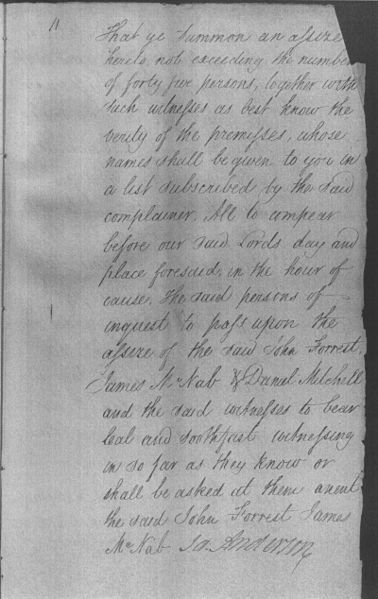 11
That ye Summon an assize
hereto not exceeding the number
of forty five persons, together with
such witnesses as best know the
verity of the premisses, whose
names shall be given to you in
a list subscribed by the said
complainer. All to compear
before our said Lords day and
place foresaid, in the hour of
cause, The said persons of
inquest to pass upon the
assize of the said John Forrest,
James McNab & Daniel Mitchell
and the said witnesses to bear
leal and soothfast witnessing
in so far as they know or
shall be asked at them anent
the said John Forrest James
McNab Ja Anderson